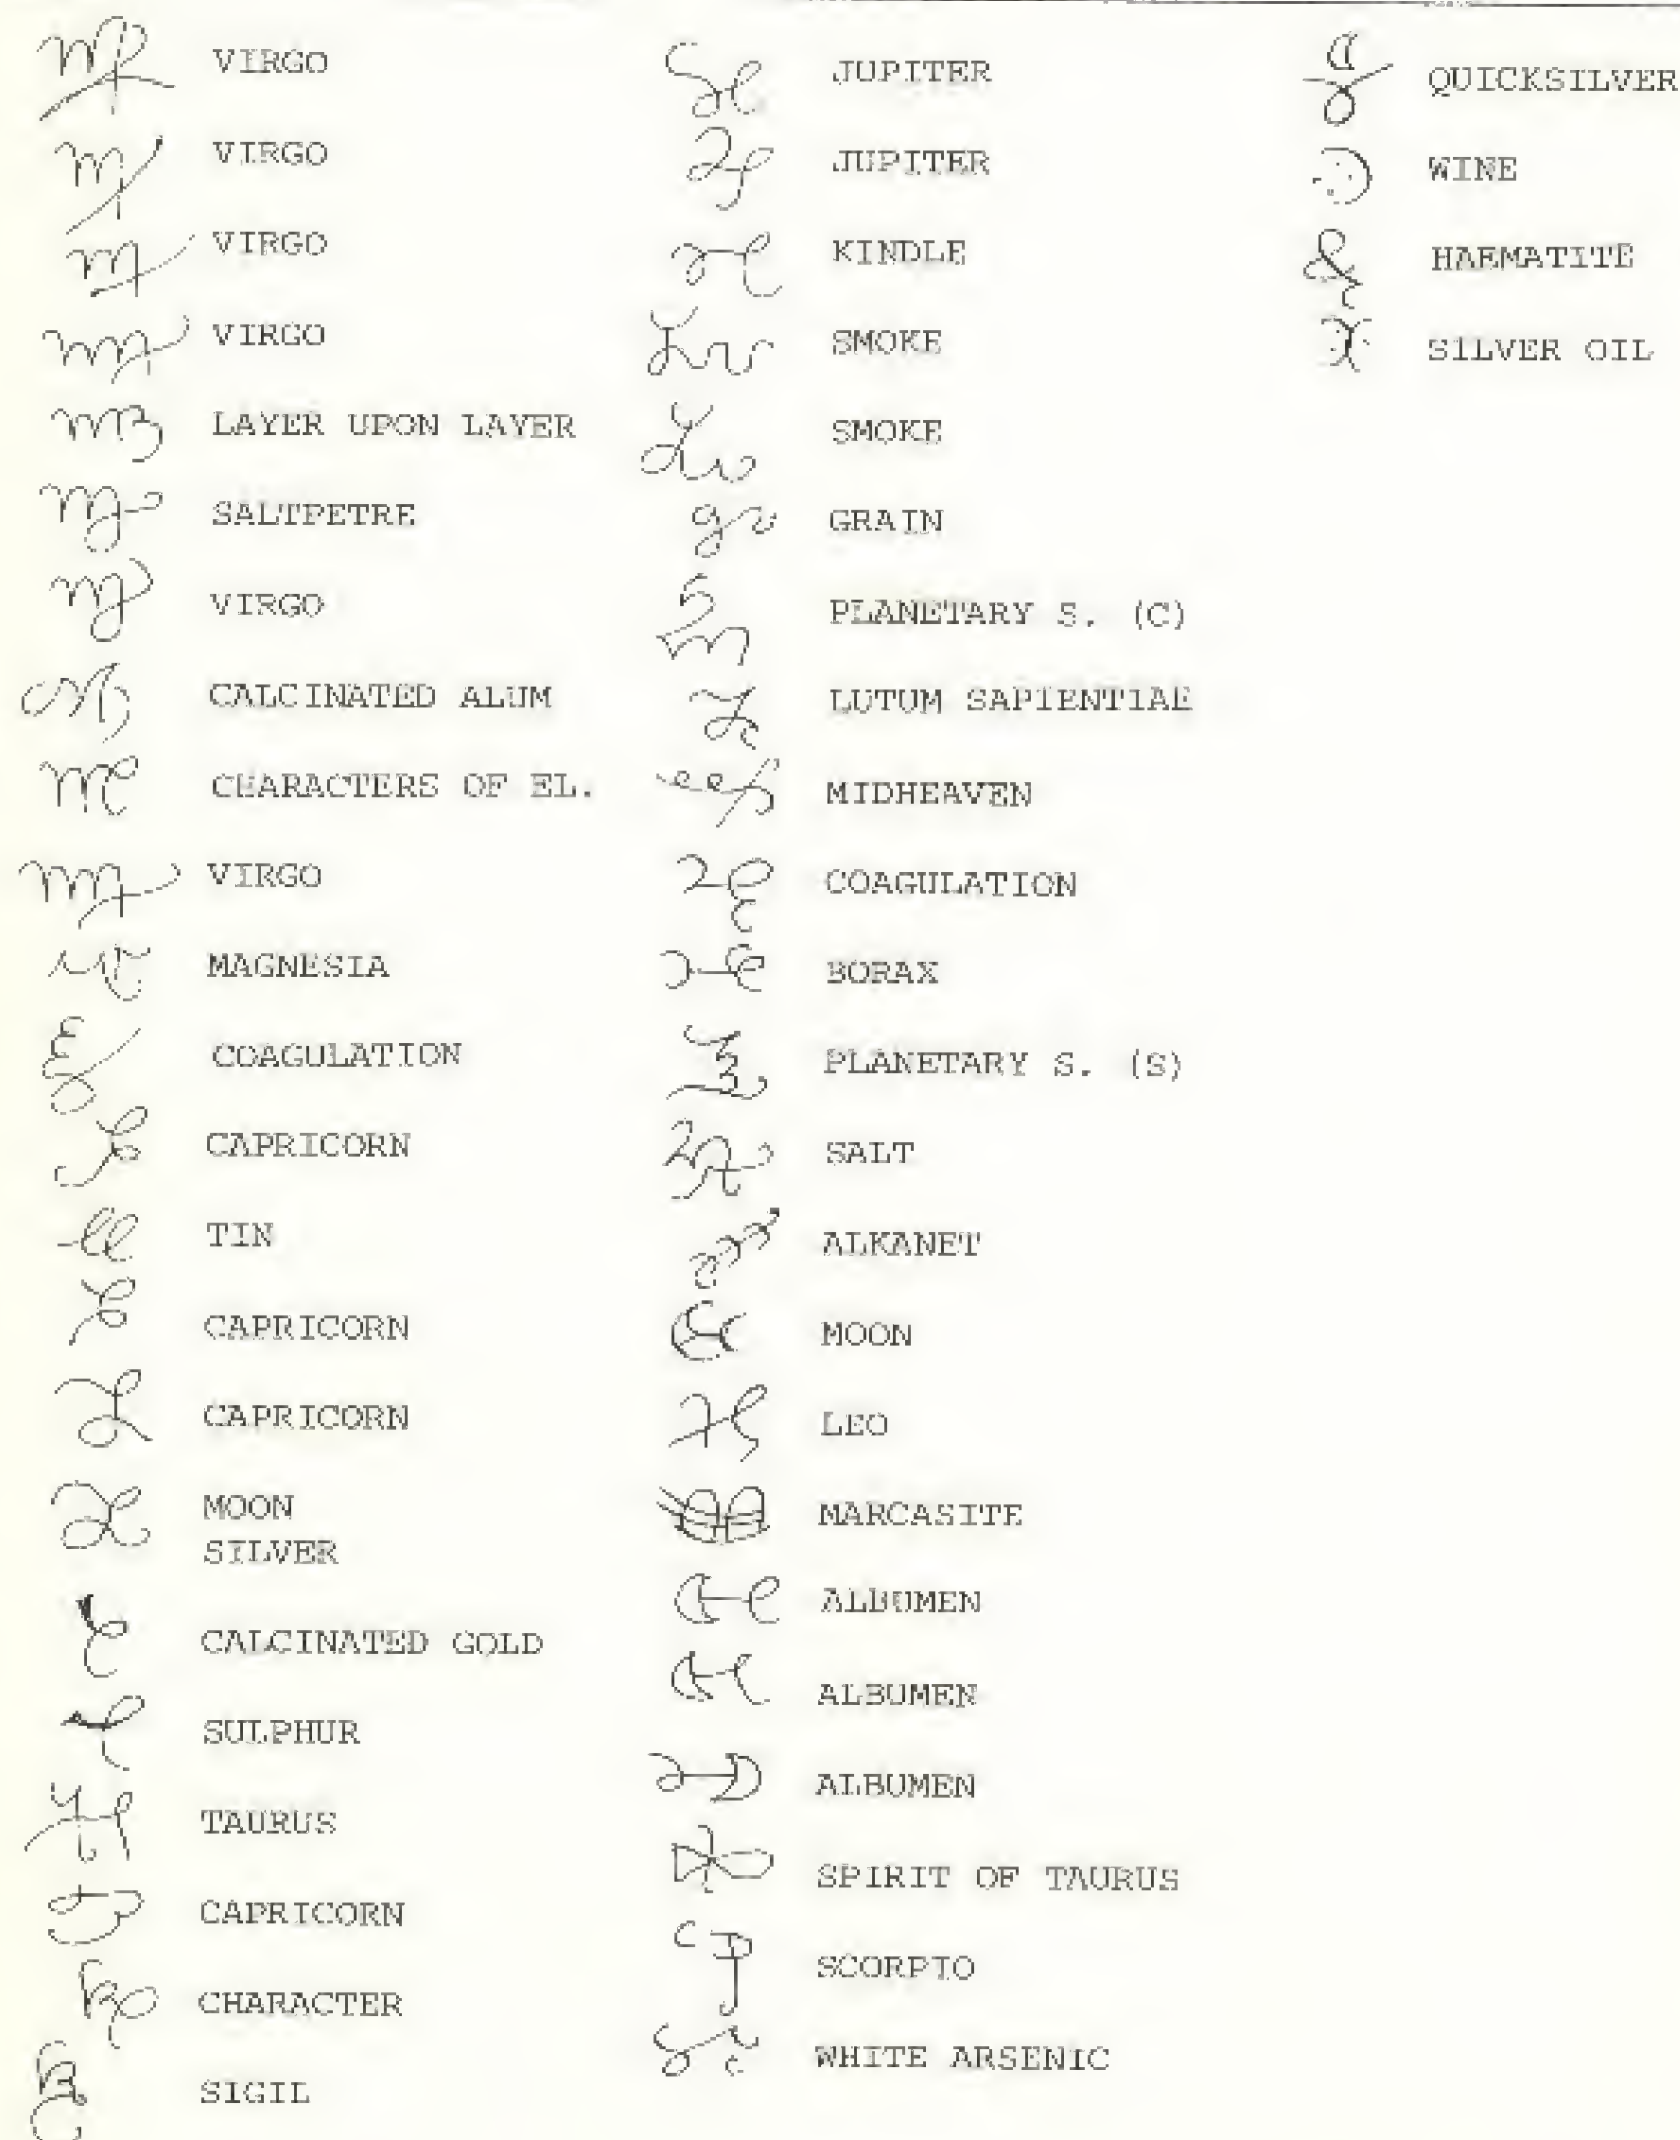 VIRGO
VIRGO
VIRGO
VIRGO
LAYER UPON LAYER
SALTPETRE
VIRGO
CALCINATED ALUM
CHARACTERS OF EL.
VIRGO
MAGNESIA
COAGULATION
CAPRICORN
TIN
CAPRICORN
CAPRICORN
MOON
SILVER
CALCINATED GOLD
SULPHUR
TAURUS
CAPRICORN
CHARACTER
SIGIL
JUPITER
JUPITER
KINDLE
SMOKE
SMOKE
GRAIN
PLANETARY S. (C)
LUTUM SAPIENTIAE
MIDHEAVEN
COAGULATION
BORAX
PLANETARY S. (S)
SALT
ALKANET
MOON
LEO
MARCASITE
ALBUMEN
ALBUMEN
ALBUMEN
SPIRIT OF TAURUS
SCORPIO
WHITE ARSENIC
QUICKSILVER
WINE
HAEMATITE
SILVER OIL